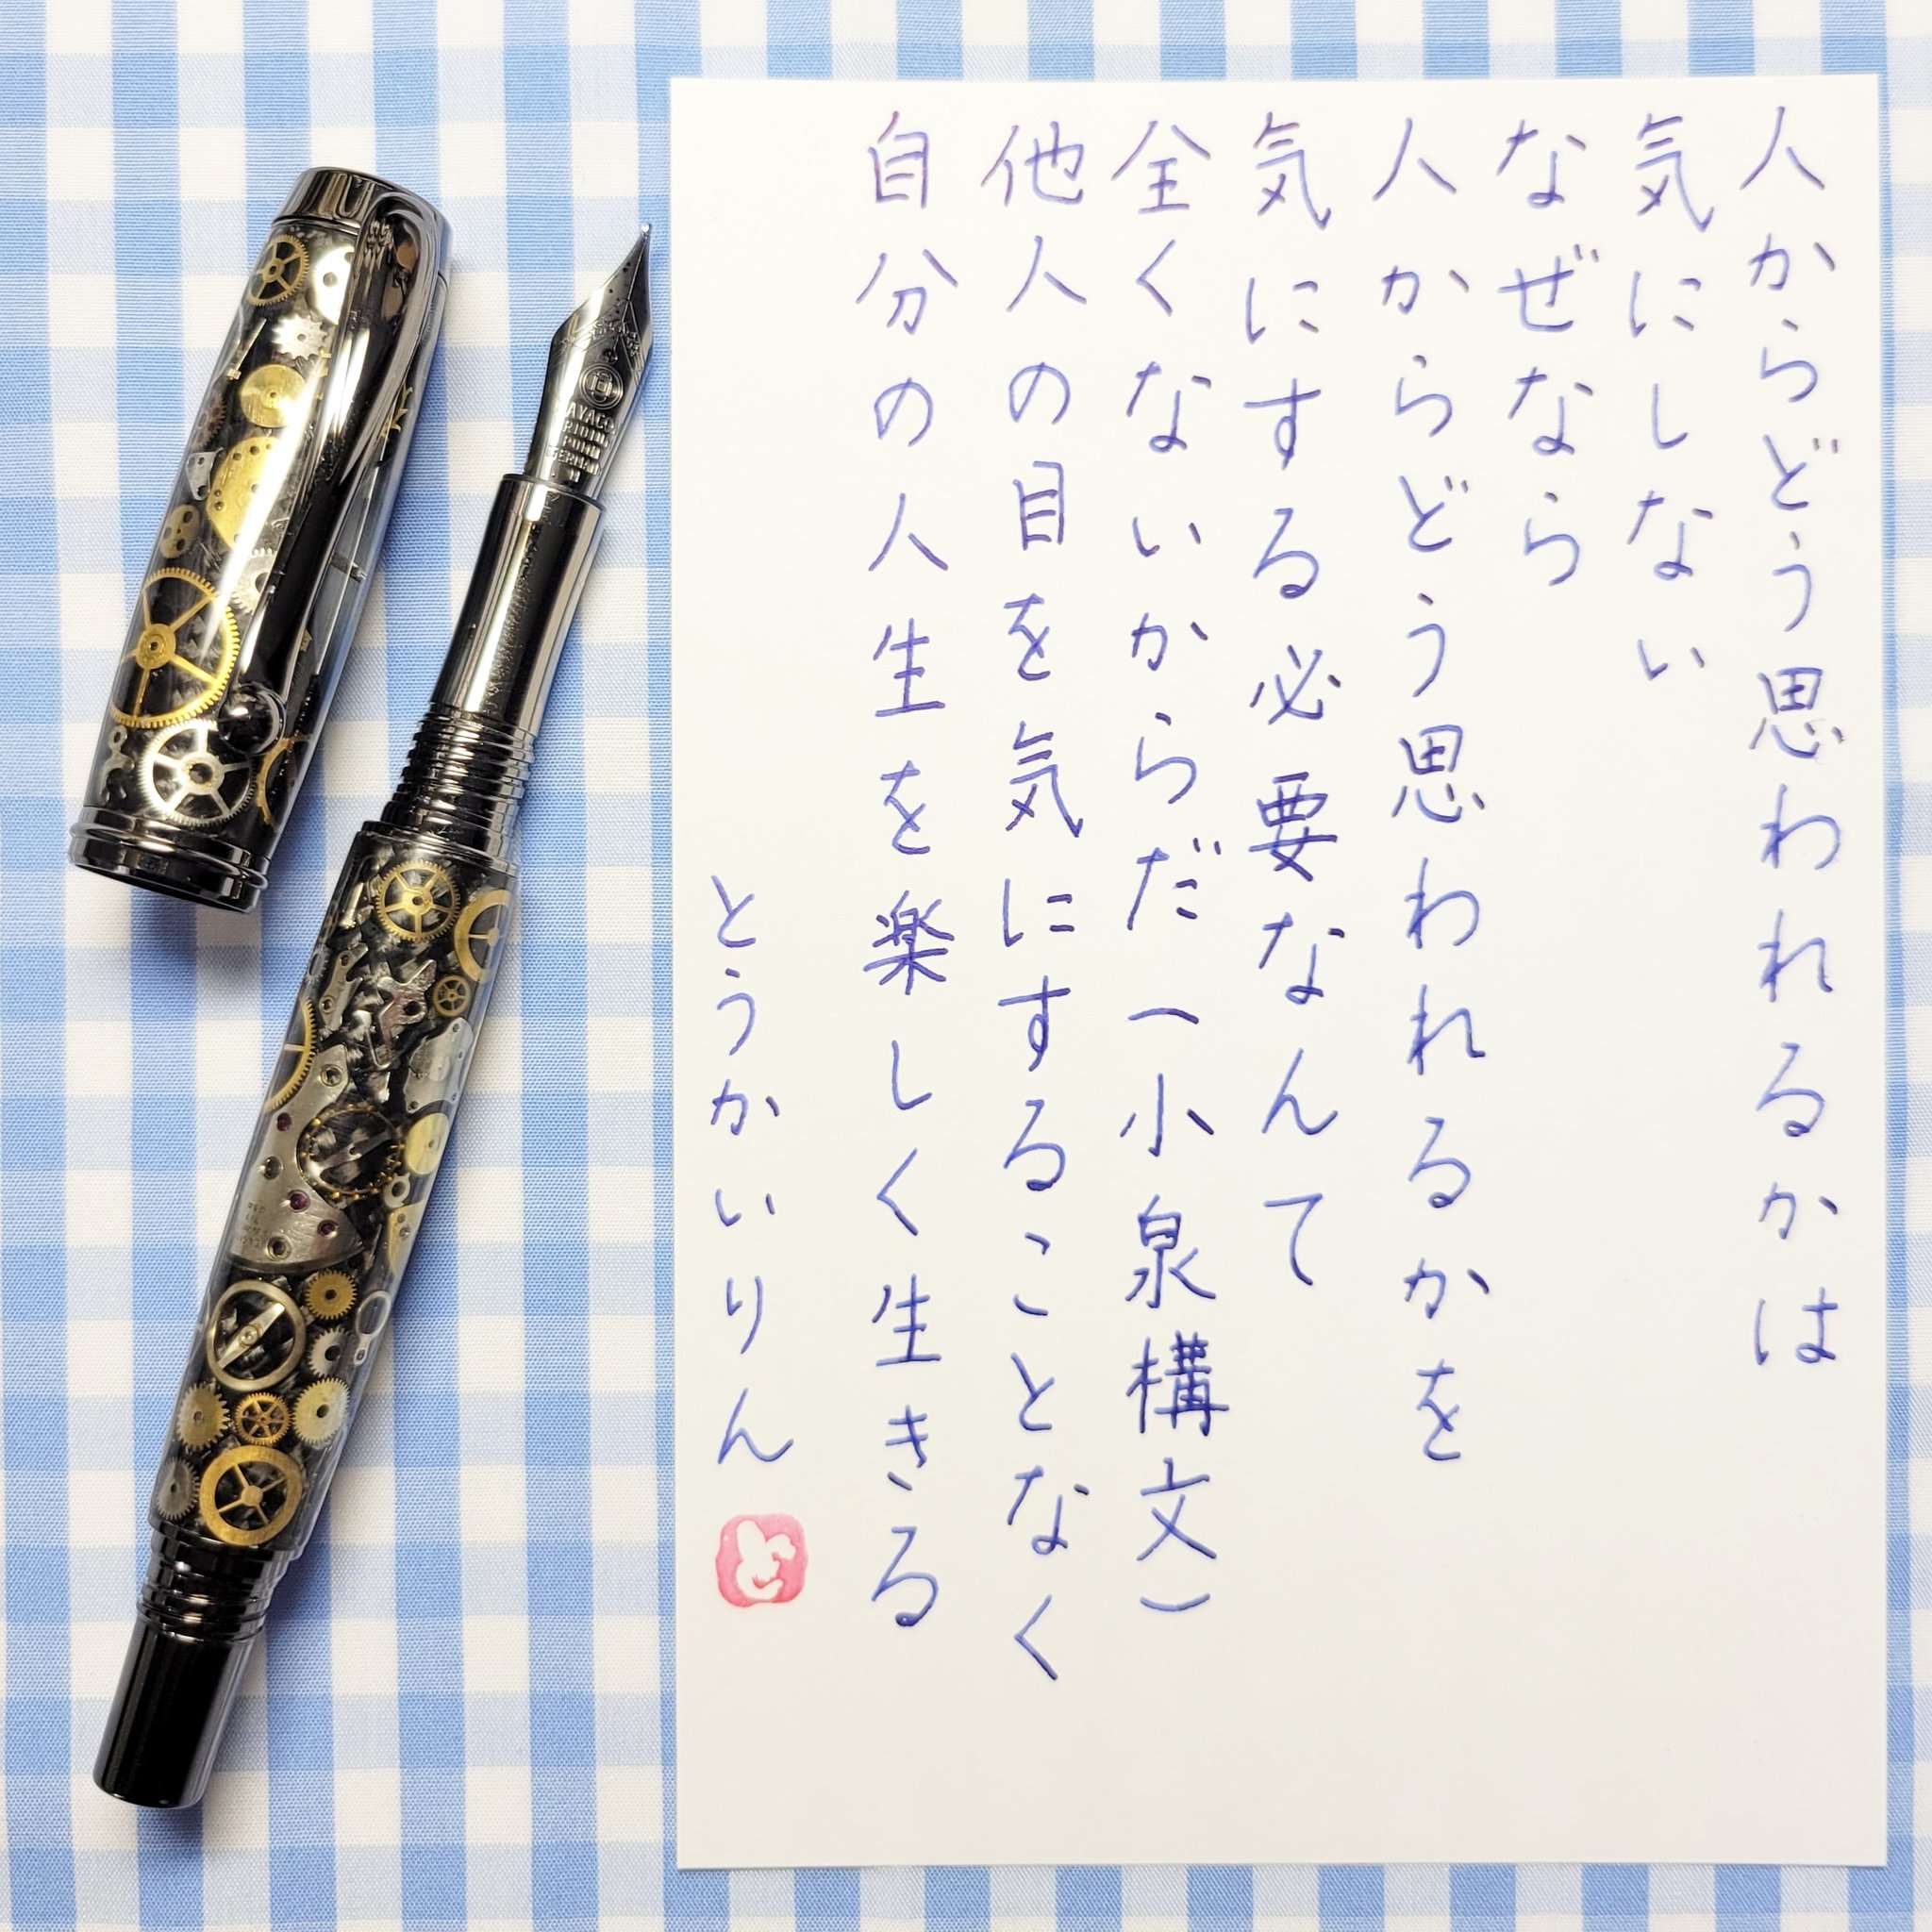 人からどう思われるかは
気にしない
なぜなら
人からどう思われるかを
気にする必要なんて
全くないからだ（小泉構文）
他人の目を気にすることなく
自分の人生を楽しく生きる
とうかいりん
と